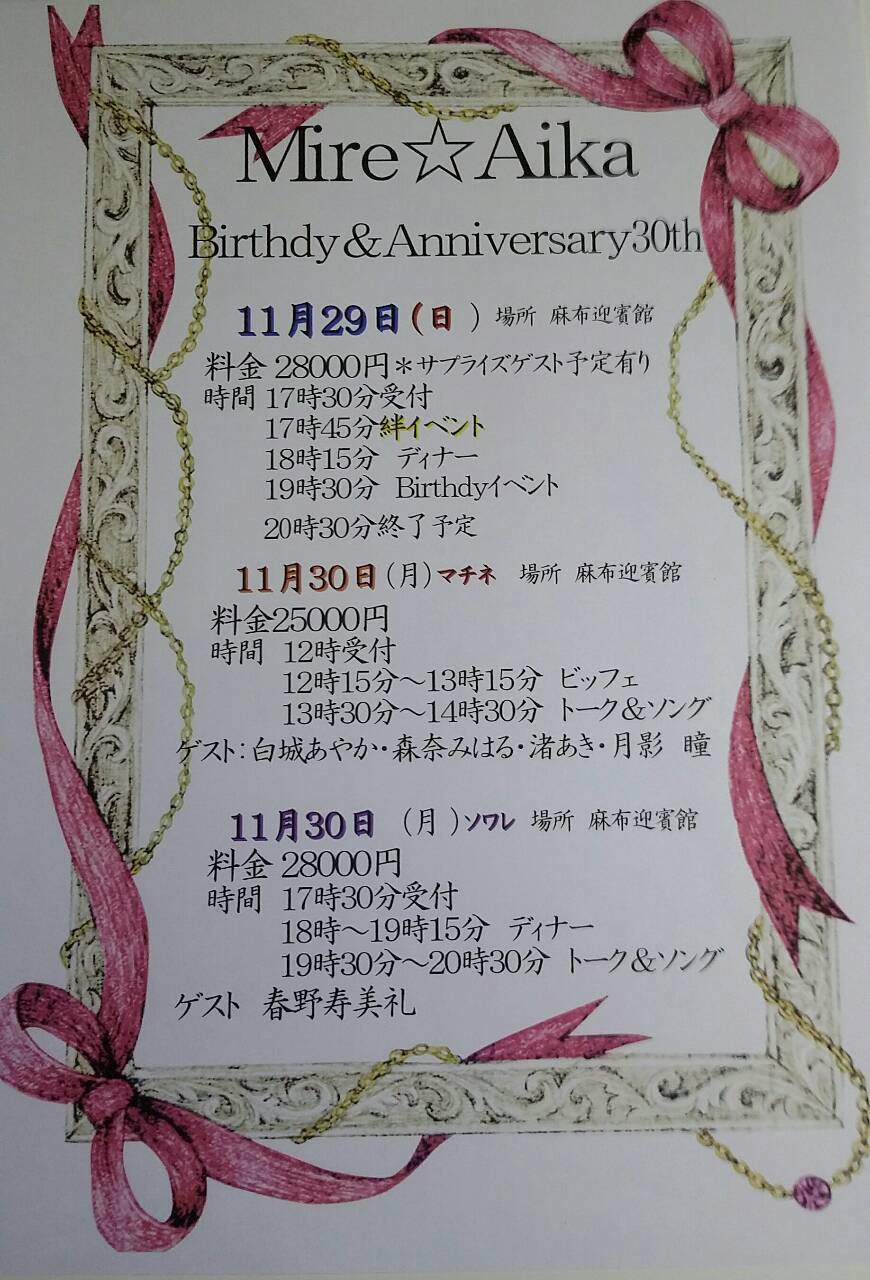 Mire☆Aika
Birthdy＆Anniversary30th
11月29日(日 ) 場所 麻布迎賓館
料金 28000円＊サプライズゲスト予定有り
時間 17時30分受付
17時45分絆イベント
18時15分 ディナー
19時30分 Birthdyイベント
20時30分終了予定
11月30日(月)マチネ 場所 麻布迎賓館
料金25000円
時間 12時受付
12時15分～13時15分 ビッフェ
13時30分～14時30分 トーク＆ソング
ゲスト：白城あやか・森奈みはる・渚あき・月影 瞳
11月30日 (月 )ソワレ 場所 麻布迎賓館
料金 28000円
時間 17時30分受付
18時～19時15分 ディナー
19時30分～20時30分 トーク＆ソング
ゲスト 春野寿美礼